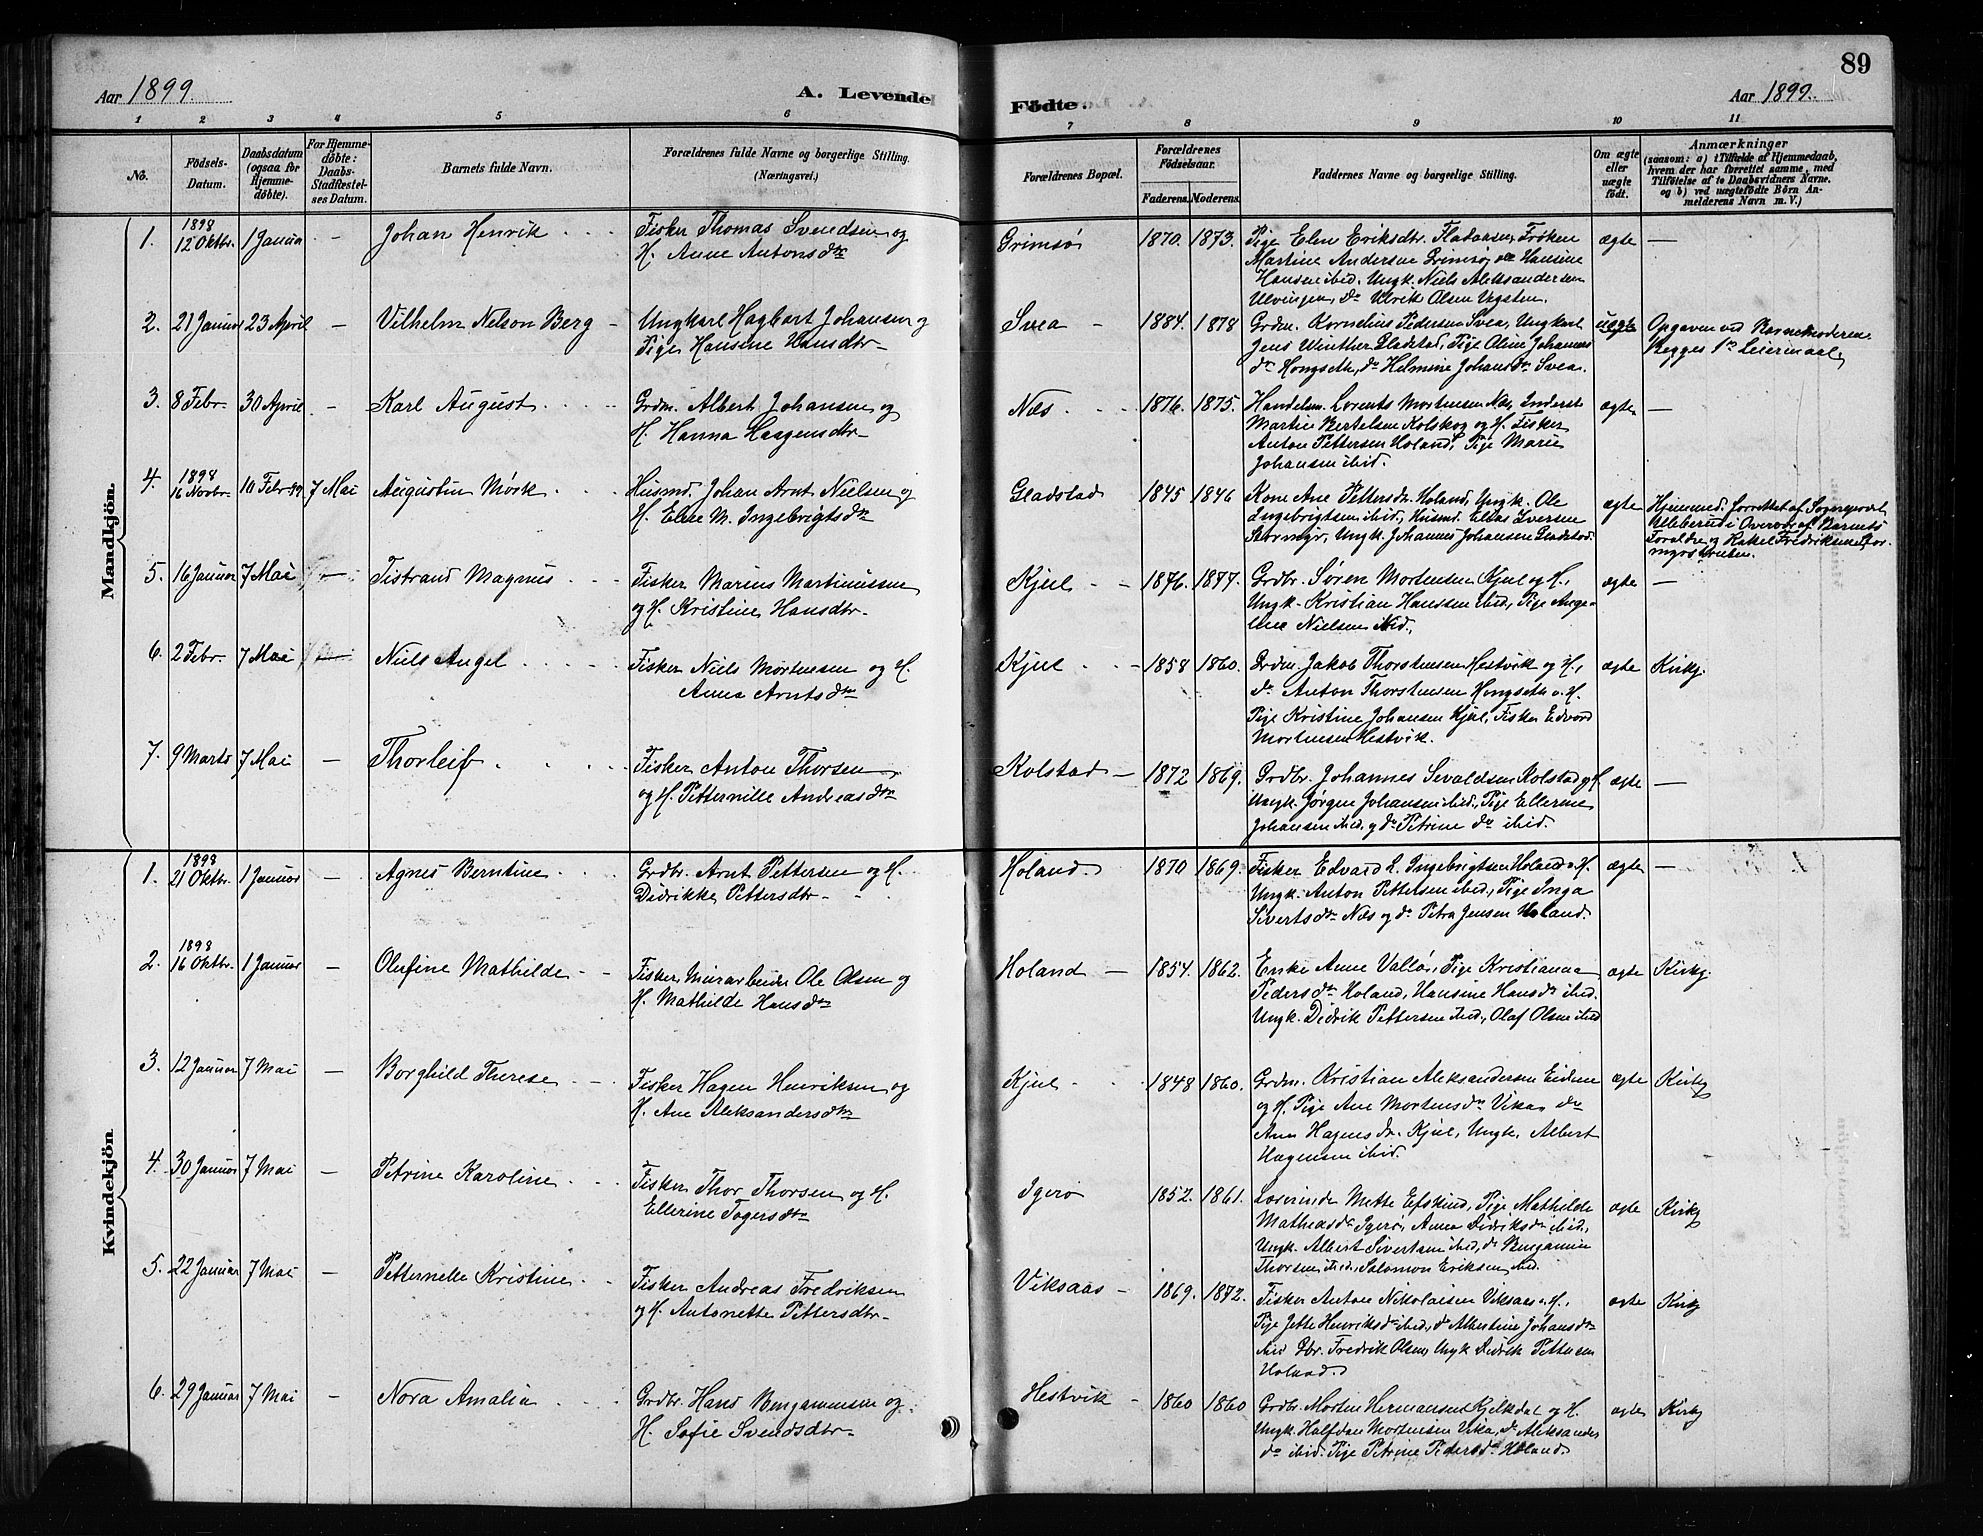 89
Aar 1899.
A. Levende
Födte.
Aar 1899.
1 2 3 4 5 6 7 8 9 10 11
No.
Födsels-Datum.
Daabsdatum (ogsaa for Hjemmedöbte).
For Hjemmedöbte: Daabs-Stadfæstelses Datum.
Barnets fulde Navn.
Forældrenes fulde Navne og borgerlige Stilling.
(Næringsvei.)
Forældrenes Bopæl.
Forældrenes Födselsaar.
Faderens. Moderens.
Faddernes Navne og borgerlige Stilling.
Om ægte eller uægte födt.
Anmærkninger
(saasom: a) i Tilfælde af Hjemmedaab, hvem der har forrettet samme, med Tilföielse af to Daabsvidners Navne. og b) ved uægtefödte Börn Anmelderens Navn m. V.)
Mandkjön.
1. 1898 12 Oktbr. 1 Januar - Johan Henrik
Fisker Thomas Svendsen og
H. Anne Antonsdtr
Grimsø 1870. 1873.
Pige Elen Eriksdtr. Fladøen, Frøken
Martine Andersen Grimsø, Hansine
Hansen ibid. Ungk. Niels Aleksandersen
Ulvingen, do Ulrik Olsen Vegsten.
ægte —
2. 21 Januar 23 April - Vilhelm Nelson Berg
Ungkarl Hagbart Johansen og
Pige Hansine Hansdtr
Svea 1884. 1878
Grdm. Kornelius Pedersen Svea, Ungkarl
Jens Winther Gladstad, Pige Oline Johansen
do Hongseth, do Helmine Johansdtr Svea.
uægte
Opgaven ved Barnemoderen.
Begges 1ste Leiermaal.
3. 8 Febr. 30 April - Karl August
Grdm. Albert Johansen og
H. Hanna Haagensdtr
Næs 1876. 1875.
Handelsm. Lorents Mortensen Næs, Inderst
Martin Bertelsen Kolskog og H. Fisker
Anton Pettersen Holand, Pige Marie
Johansen ibid.
ægte —
4. 1898 16 Novbr. 10 Febr 99 7 Mai Augustin Mörk
Husmd. Johan Arnt Nielsen og
H. Elen M. Ingebrigtsdtr
Gladstad 1845 1846
Kone Ane Pettersdtr. Holand, Ungk. Ole
Ingebrigtsen ibid, Husmd. Elias Iversen
Stormyr, Ungk. Johannes Johansen Gladstad.
ægte
Hjemmed. forrettet af Sogneprest
Ulleberud i Overvær af Barnets
Forældre og Hakel Fredriksen
5. 16 Januar 7 Mai - Tistrand Magnus
Fisker Marius Martinussen
og H. Kristine Hansdtr
Kjul 1876. 1877.
Grdbr. Søren Mortensen Kjul og H.,
Ungk. Kristian Hanssen ibid, Pige Ange-
line Nielsen ibid.
ægte —
6. 2 Febr. 7 Mai - Niels Angel
Fisker Niels Mortensen og H.
Anna Arntsdtr
Kjul 1858 1860.
Grdm. Jakob Thorstensen Hestvik og H.,
do Anton Thorstensen Hongseth o. H.
Pige Kristine Johansen Kjul, Fisker Edvard
Mortensen Hestvik.
ægte Kirkg.
7. 9 Marts 7 Mai - Thorleif
Fisker Anton Thorsen
og H. Petternille Andreasdtr
Kolstad 1872 1869.
Grdbr. Johannes Sivaldsen Kolstad og H.
Ungk. Jørgen Johansen ibid., Pige Ellerine
Johansen ibid. og do Petrine do ibid.
ægte —
Kvindekjön.
1. 1898 21 Oktbr. 1 Januar - Agnes Berntine
Grdbr. Arnt Pettersen og H.
Didrikke Pettersdtr
Holand 1870 1869.
Fisker Edvard L. Ingebrigtsen Holand o. H.
Ungk. Anton Pettersen ibid., Pige Inga
Sivertsdtr Næs og do Petra Jensen Holand.
ægte —
2. 1898 16 Oktbr. 1 Januar - Olufine Mathilde
Fisker Murarbeider Ole Olsen og
H. Mathilde Hansdtr
Holand 1854. 1862.
Enke Anne Vallø, Pige Kristianna
Pedersdtr Holand, Hansine Hansdtr ibid.
Ungk. Didrik Pettersen ibid., Olaf Olsen ibid
ægte Kirkg.
3. 12 Januar 7 Mai - Borghild Therese
Fisker Hagen Henriksen og
H. Ane Aleksandersdtr
Kjul 1848 1860.
Grdm. Kristian Aleksandersen Eidem
og H. Pige Ane Mortensdtr Vika, do
Ane Hagensdtr. Kjul, Ungk. Albert
Hagensen ibid.
ægte Kirkg
4. 30 Januar 7 Mai - Petrine Karoline
Fisker Thor Thorsen og H.
Ellerine Togersdtr
Igerø 1852. 1861.
Mette Efskind, Pige Mathilde
Mathiasdtr Igerø, Anna Didriksdtr ibid.,
Ungk. Albert Sivertsen ibid, do Bengamin
Thorsen ibid., Salomon Eriksen ibid.
ægte Kirkg
5. 22 Januar 7 Mai - Petternelle Kristine
Fisker Andreas Fredriksen
og H. Antonette Pettersdtr
Viksaas 1869. 1872.
Fisker Anton Nikolaisen Viksaas o. H.,
Pige Jette Henriksdtr ibid., do Albertine Johansdtr
ibid Gbr. Fredrik Olsen, Ungk Didrik Pettersen
Holand.
ægte Kirkg
6. 29 Januar 7 Mai - Nora Amalia
Grdbr. Hans Bengaminsen og
H. Sofie Svendsdtr
Hestvik 1860 1860
Grdbr. Morten Hermansen Kjelkdal og H.
Ungk. Halfdan Mortensen Vika, do Aleksander
do ibid. Pige Petrine Pedersdtr Holand
ægte Kirkg